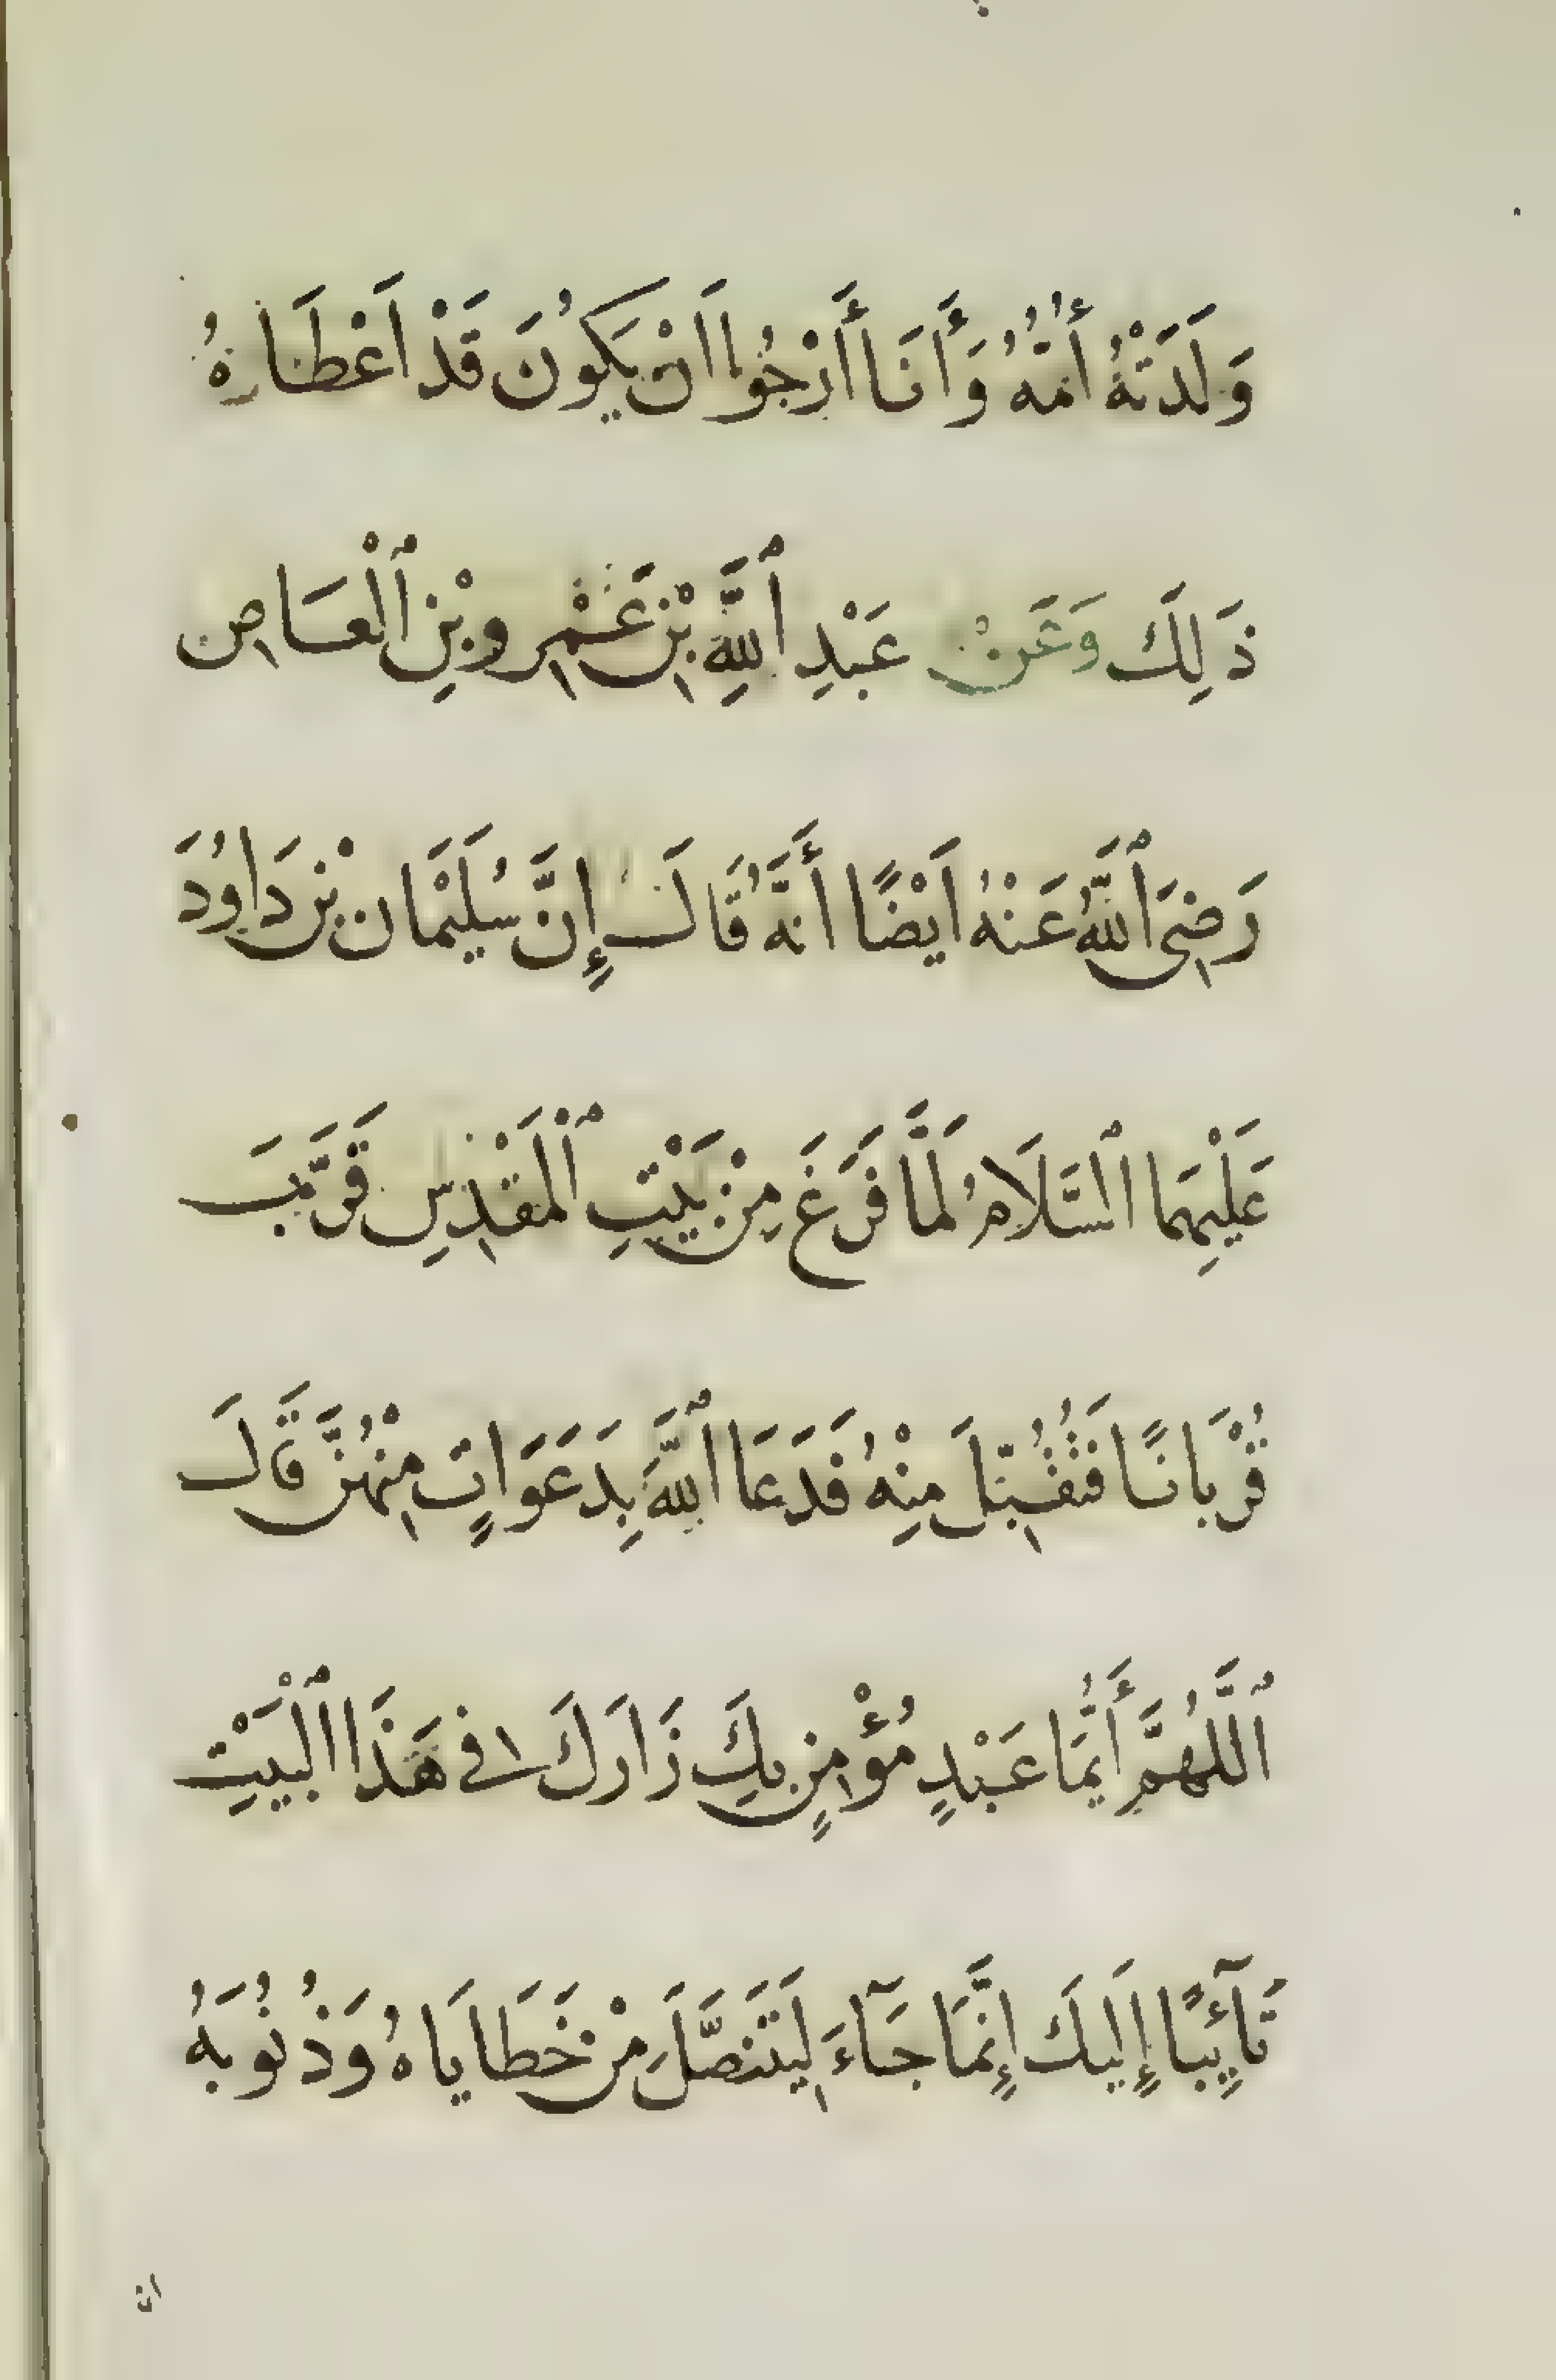 وَلَدَتْهُ أُمُّهُ وَأَنَا أَرْجُوا اَنْ يَكُونَ قَدْ اَعْطَاهُ
ذَلِكَ وَعَنْ عَبْدِ ٱللَّهِ بْنِ عَمْرِو بْنِ ٱلْعَاصِ
رَضِىَ ٱللَّهُ عَنْهُ اَيْضًا أَنَّهُ قَالَ إِنَّ سُلَيْمَان بْنَ دَاوُدَ
عَلَيْهِمَا ٱلسَّلَامُ لَمَّا فَرَغَ مِنْ بَيْتِ ٱلْمَقْدِسِ قَرَّبَ
قُرْبَانًا فَتُقُبِّلَ مِنْهُ فَدَعَا ٱللَّهَ بِدَعَوَاتٍ مِنْهُنَّ قَالَ
ٱللَّهُمَّ أَيُّمَا عَبْدٍ مُؤْمِنٍ بِكَ زَارَكَ فِى هَذَا ٱلْبَيْتِ
تَآئِبًا إِلَيكَ إِنَّمَا جَآءَ لِيَتَنَصَّلَ مِنْ خَطَايَاهُ وَذُنُوبَهُ